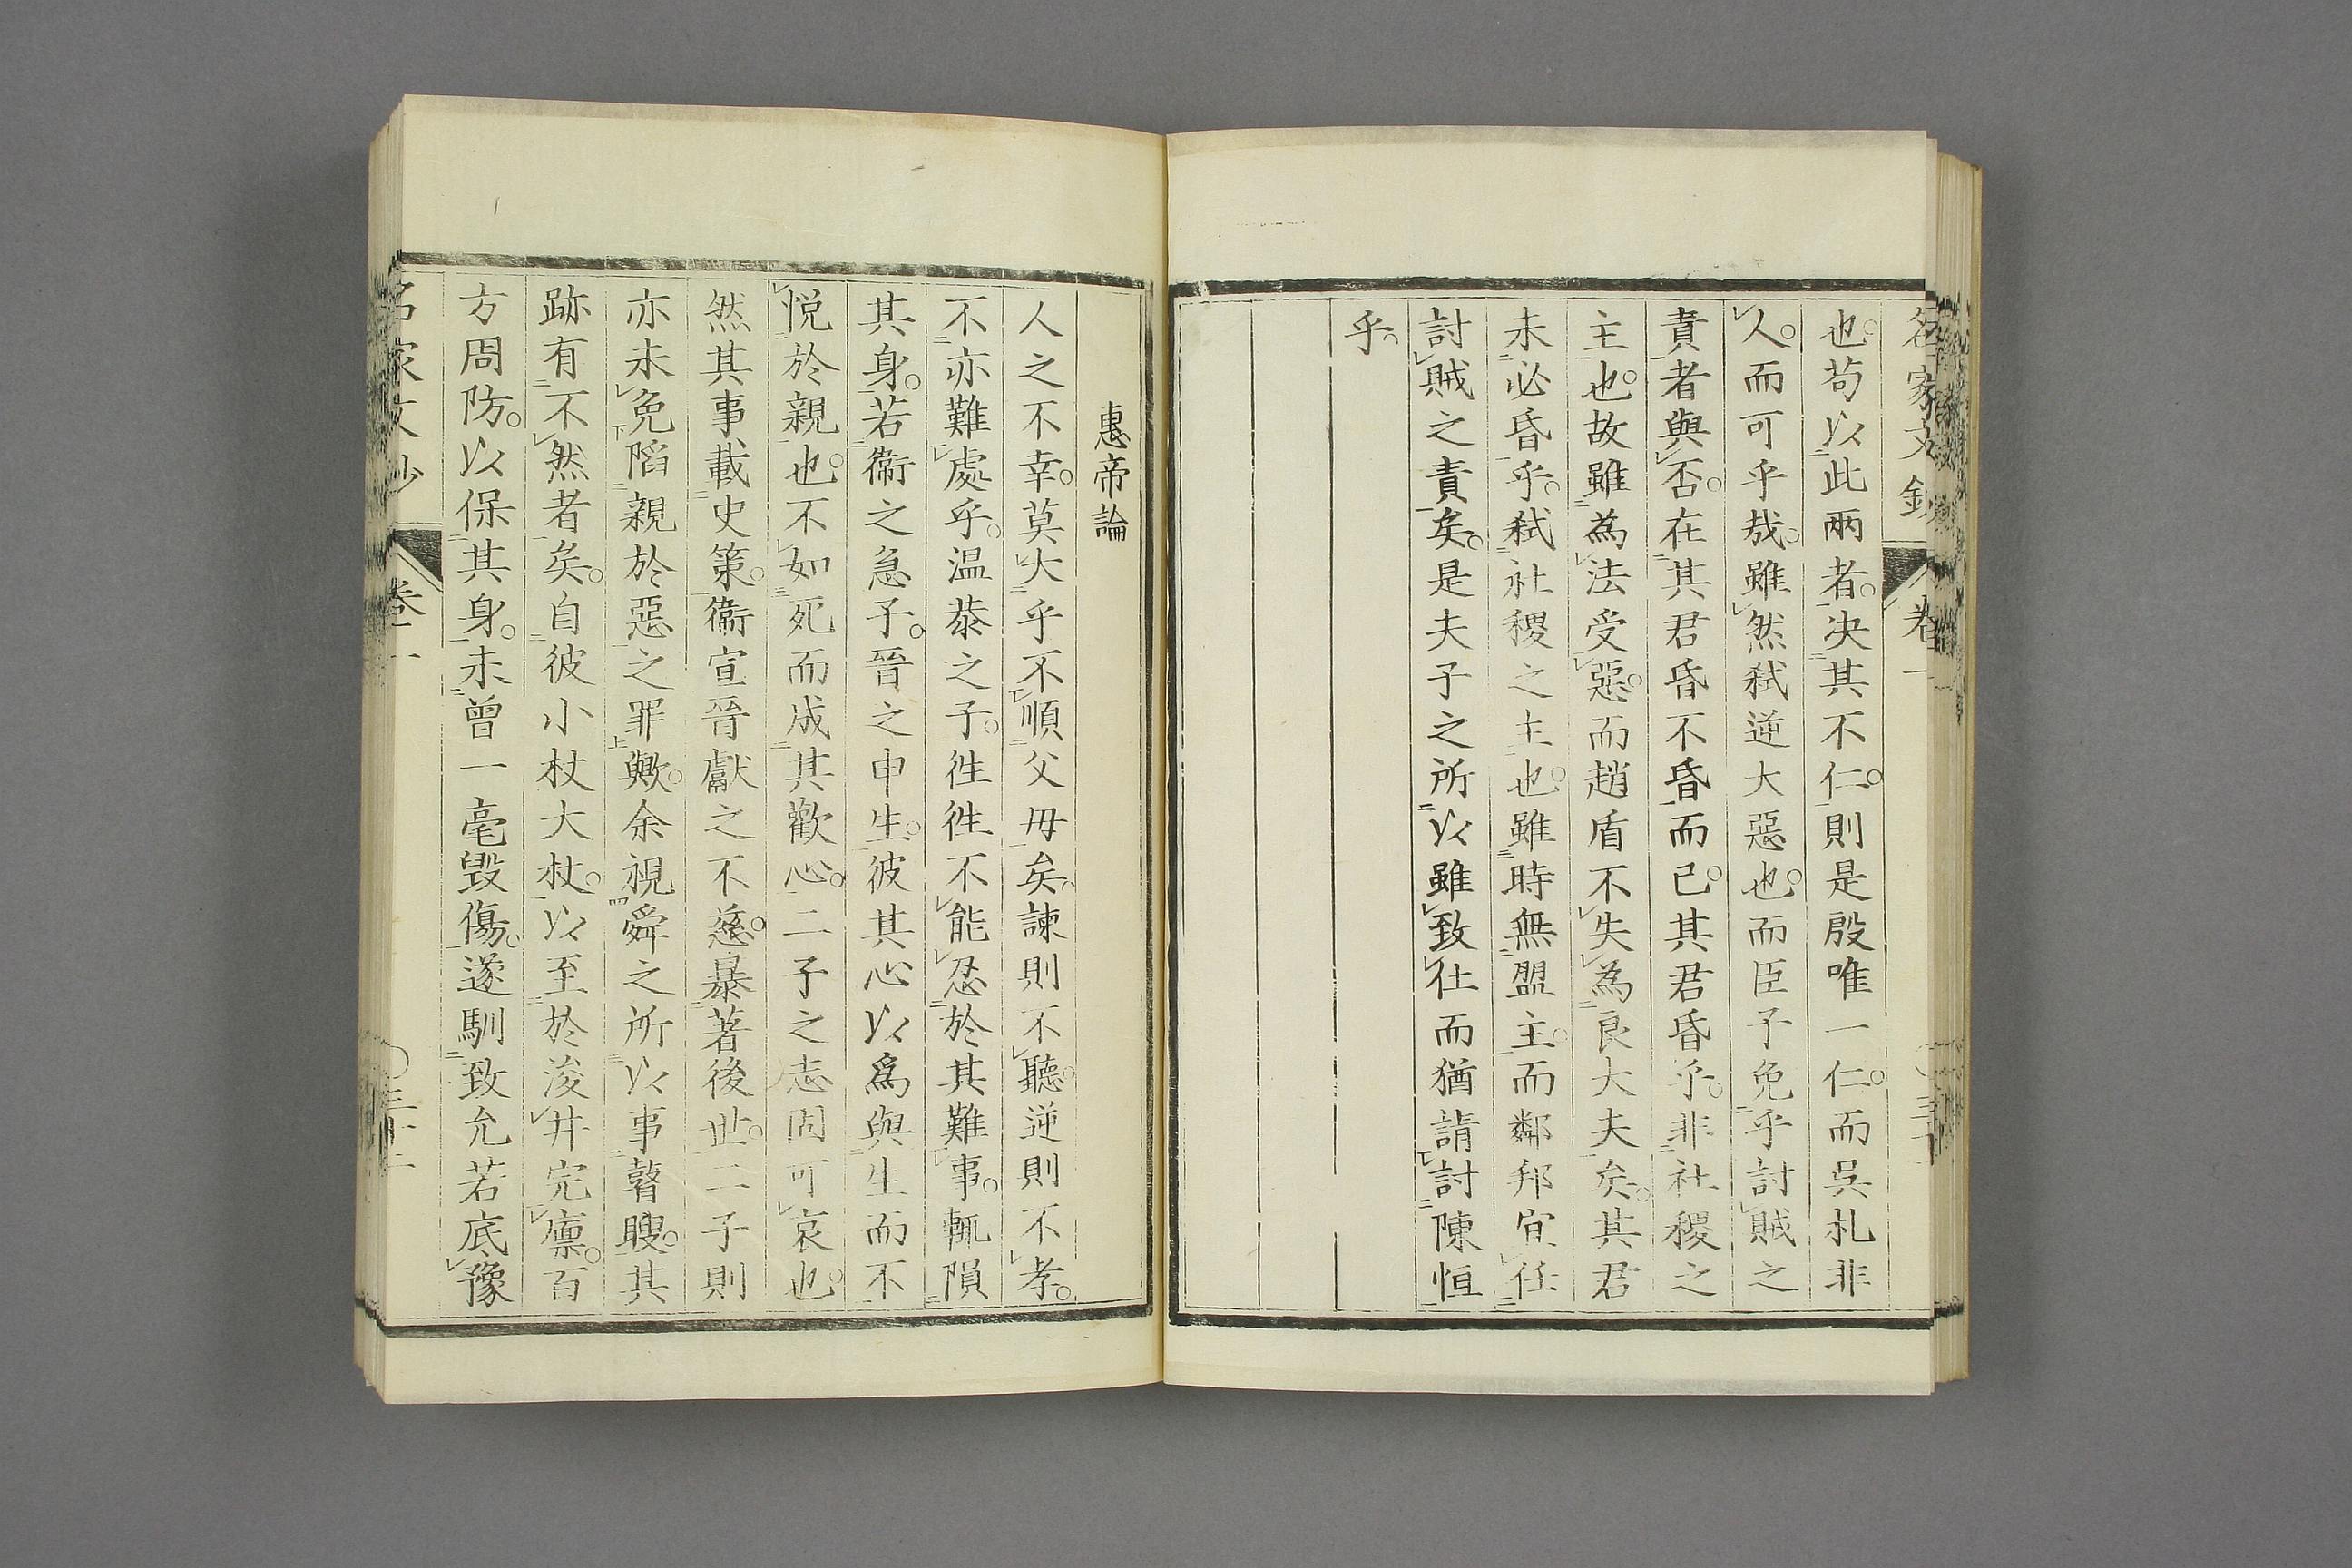 名家文鈔 卷一
也苟以此兩者決其不仁則是殷唯一仁而吳札非
人而可乎哉雖然弒逆大惡也而臣子免乎討賊之
責者與否在其君昏不昏而已其君昏乎非社稷之
主也故雖為法受惡而趙盾不失為良大夫矣其君
未必昏乎弒社稷之主也雖時無盟主而鄰邦宜任
討賊之責矣是夫子之所以雖致仕而猶請討陳恒
乎
惠帝論
人之不幸莫大乎不順父母矣諫則不聽逆則不孝
不亦難處乎温恭之子徃徃不能忍於其難事輒隕
其身若衞之急子晉之申生彼其心以爲與生而不
悦於親也不如死而成其歡心二子之志固可哀也
然其事載史策衞宣晉獻之不慈暴著後世二子則
亦未免陷親於惡之罪歟余視舜之所以事瞽瞍其
跡有不然者矣自彼小杖大杖以至於浚井完廩百
方周防以保其身未曾一毫毀傷遂馴致允若底豫
名家文鈔 卷一